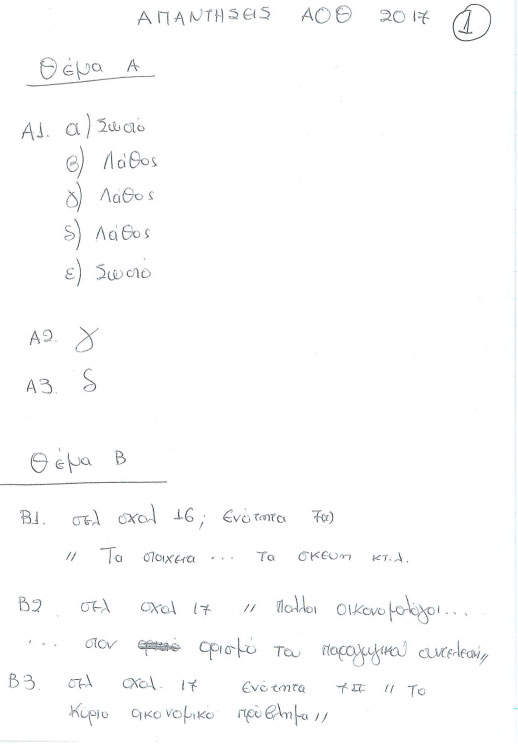 ΑΠΑΝΤΗΣΕΙΣ ΑΟΘ 2017 1
Θέμα Α
Α1. α) Σωστό
β) Λάθος
γ) Λάθος
δ) Λάθος
ε) Σωστό
Α2. γ
Α3. δ
Θέμα Β
Β1. σελ σχολ 16, ενότητα 7α)
" Τα στοιχεια ... τα σκευη κτλ.
Β2 σελ σχολ 17 " Πολλοι οικονομολόγοι...
... στον ορισμό του παραγωγικού συντελεστή"
Β3. σελ σχολ. 17 ενότητα 7ΙΙ " Το
κύριο οικονομικό πρόβλημα"